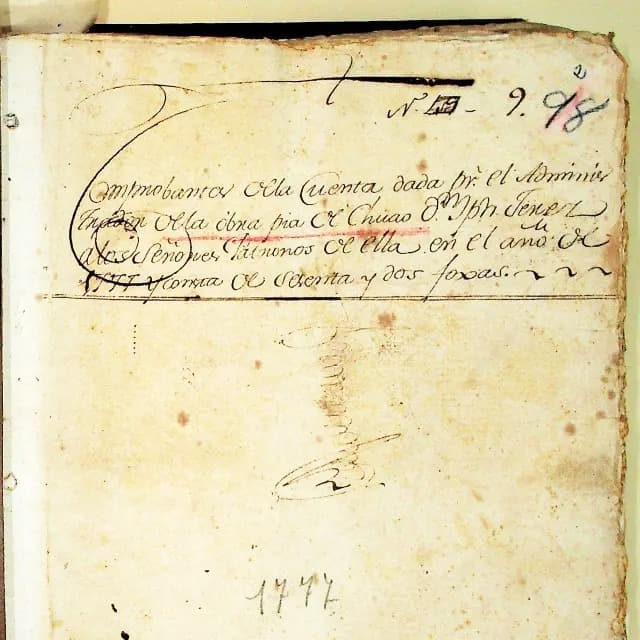 Nº 9. 98
Comprobantes de la Cuenta dada pr. el Adminis
trador de la obra pia de Chuao Dn Jph. Perez
a los Señores Patronos de ella en el año de
1777 y consta de sesenta y dos foxas.
1777